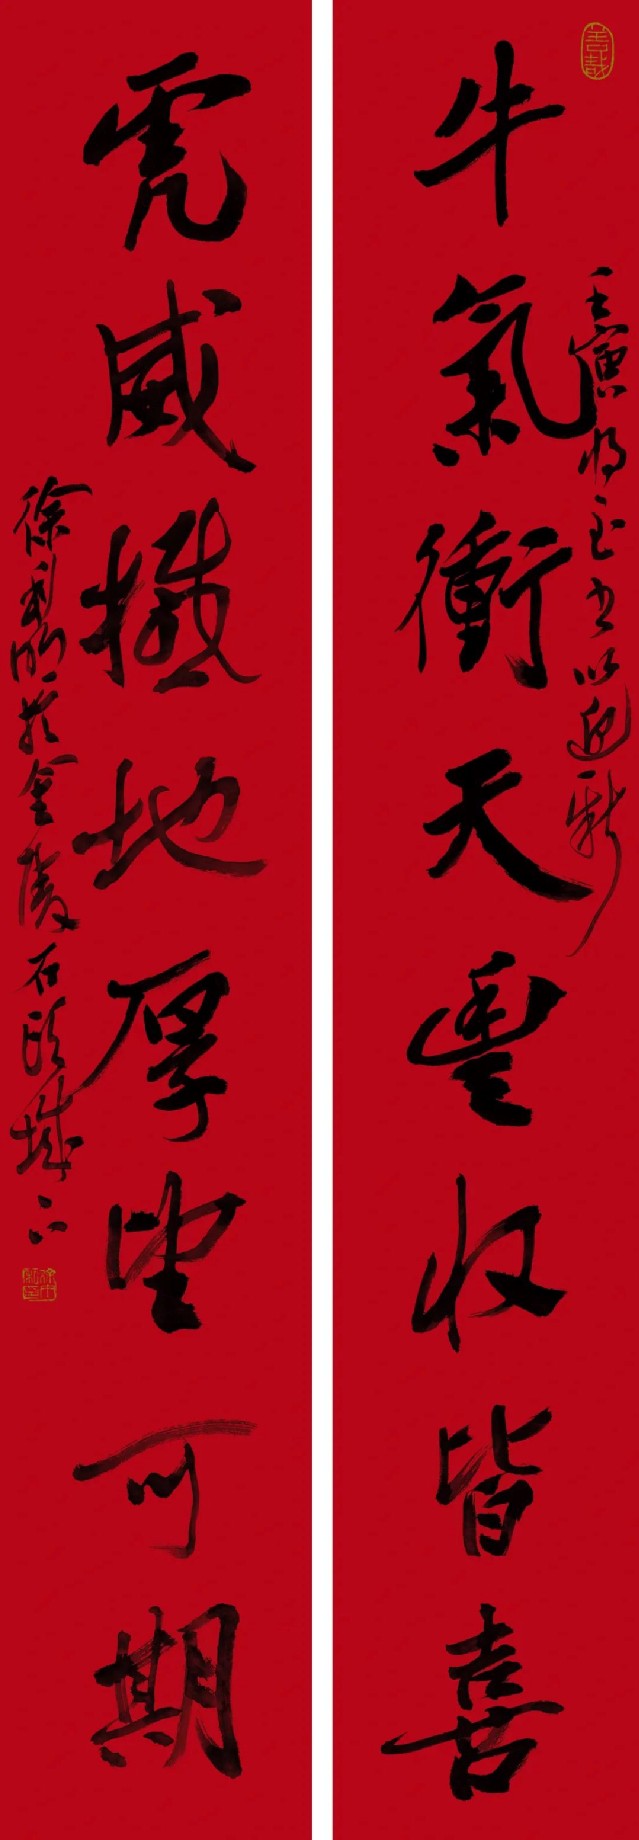 牛氣衝天豐收皆喜
壬寅將至書以迎新
虎威撼地厚望可期
徐利明於金陵石頭城下
善哉